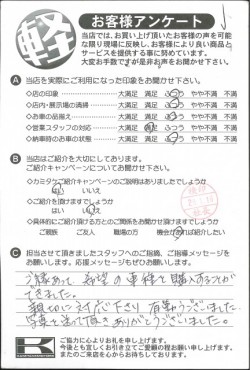 軽
お客様アンケート
当店では、お買い上げ頂いたお客様の声を可能
な限り現場に反映し、お客様により良い商品と
サービスを提供する事に努めています。
大変お手数ですが是非お声をお聞かせ下さい。
A 当店を実際にご利用になった印象をお聞かせ下さい。
◇店の印象 大満足 満足 ふつう やや不満 不満
◇店内・展示場の清掃 大満足 満足 ふつう やや不満 不満
◇お車の品揃え 大満足 満足 ふつう やや不満 不満
◇営業スタッフの対応 大満足 満足 ふつう やや不満 不満
◇納車時のお車の状態 大満足 満足 ふつう やや不満 不満
B 当店はご紹介を大切にしております。
ご紹介キャンペーンについてお聞かせ下さい。
◇カミタケご紹介キャンペーンのご説明はありましたでしょうか
はい いいえ
◇ご紹介を頂けますでしょうか
はい いいえ
◇具体的にご紹介頂ける方とのご関係をお聞かせ頂けますでしょうか
ご親族 ご友人 職場の方 機会があれば紹介したい
C 担当させて頂きましたスタッフへのご指摘、ご指導メッセージを
お願いします。応援メッセージもぜひお願いします。
ご縁あって 希望の車種を購入することが
できました。
親切に対応下さり 有難うございました。
写真を送って頂きありがとうございました。
ご協力に心よりお礼を申し上げます。
今後とも宜しくお引き立てご愛顧の程お願い申し上げます。
またのご来店を心からお待ちしております。